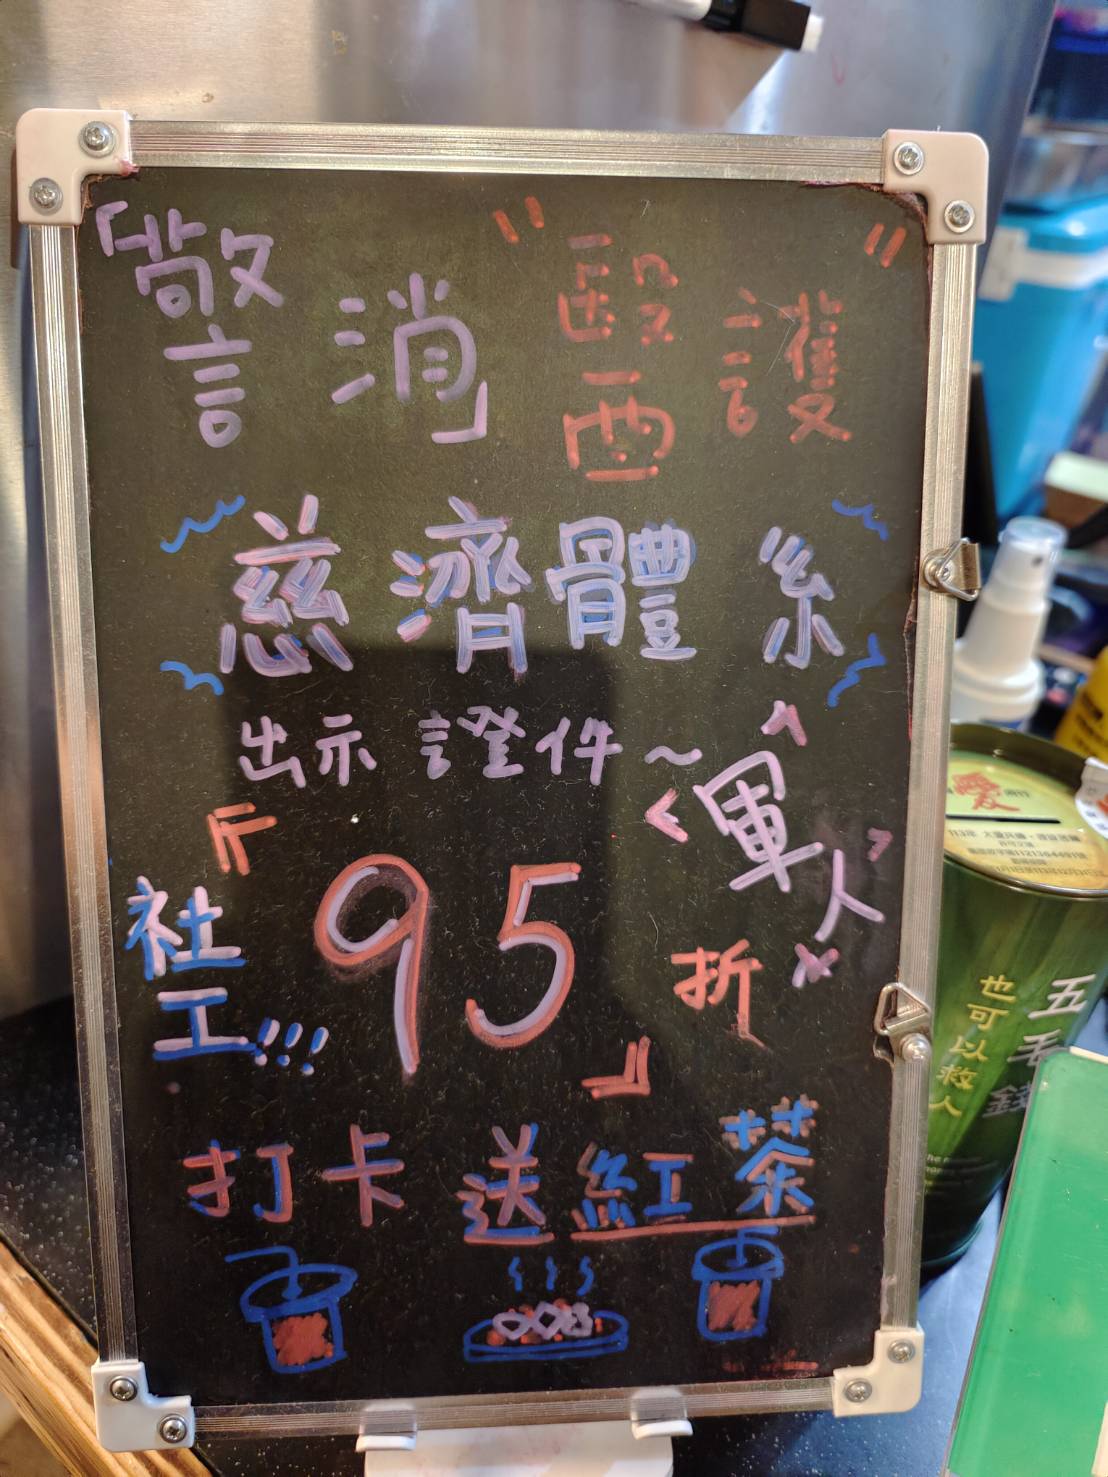 「警消」 "醫護"
慈濟體系
出示證件~
<軍人>
社工!!!
『95折』
打卡送紅茶
愛
五毛錢
也可以救人